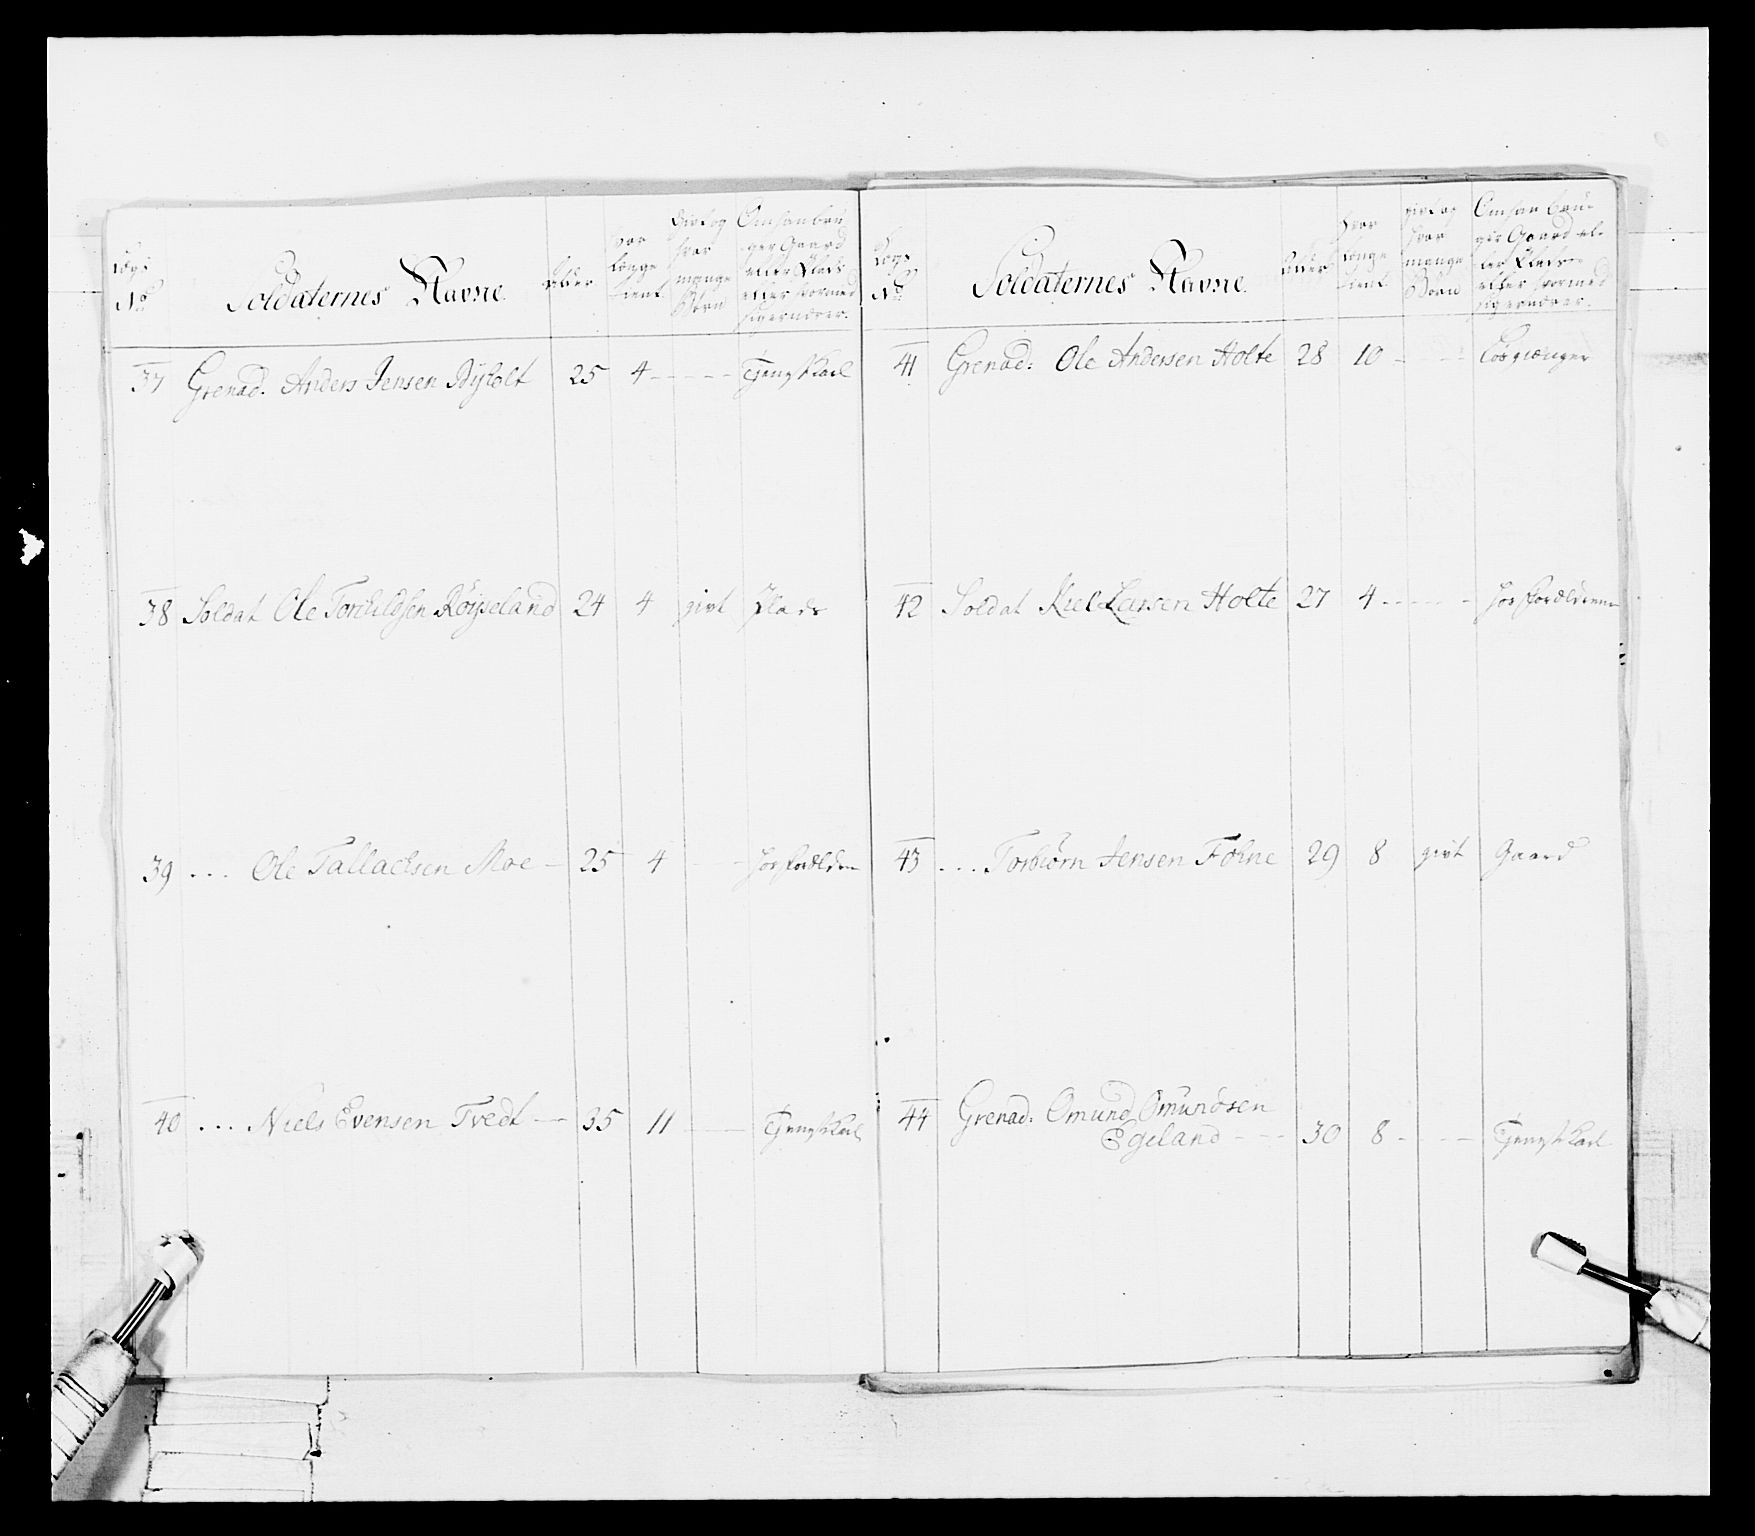 Lægs No
Soldaternes Navne
Alder
hvor længe tient
Givt og hvor mange Børn
Om han bruger Gaard eller Plads eller hvormed sig ernærer.
37 Grenad. Anders Jensen 25 4 - - - - - Tjenestkarl
38 Soldat Ole Torchildsen Röyseland 24 4 givt Plads
39 ... Ole Tallachsen Moe - 25 4 - - - hos forældrene
40 ... Niels Evensen Tvedt - - 35 11 - - Tjenestkarl
Lægs No
Soldaternes Navne
Alder
hvor længe tient
givt og hvor mange Børn
Om han bruger Gaard eller Plads eller hvormed sig ernærer.
41 Grenad: Ole Andersen Holte 28 10 - - - Losgænger
42 Soldat Kiel Larsen Holte 27 4 - - - - hos forældrene
43 ... Torbiørn Jensen Fohne 29 8 givt Gaard
44 Grenad: Omund Omundsen
Egeland - - - 30 8 - - - Tjenestkarl